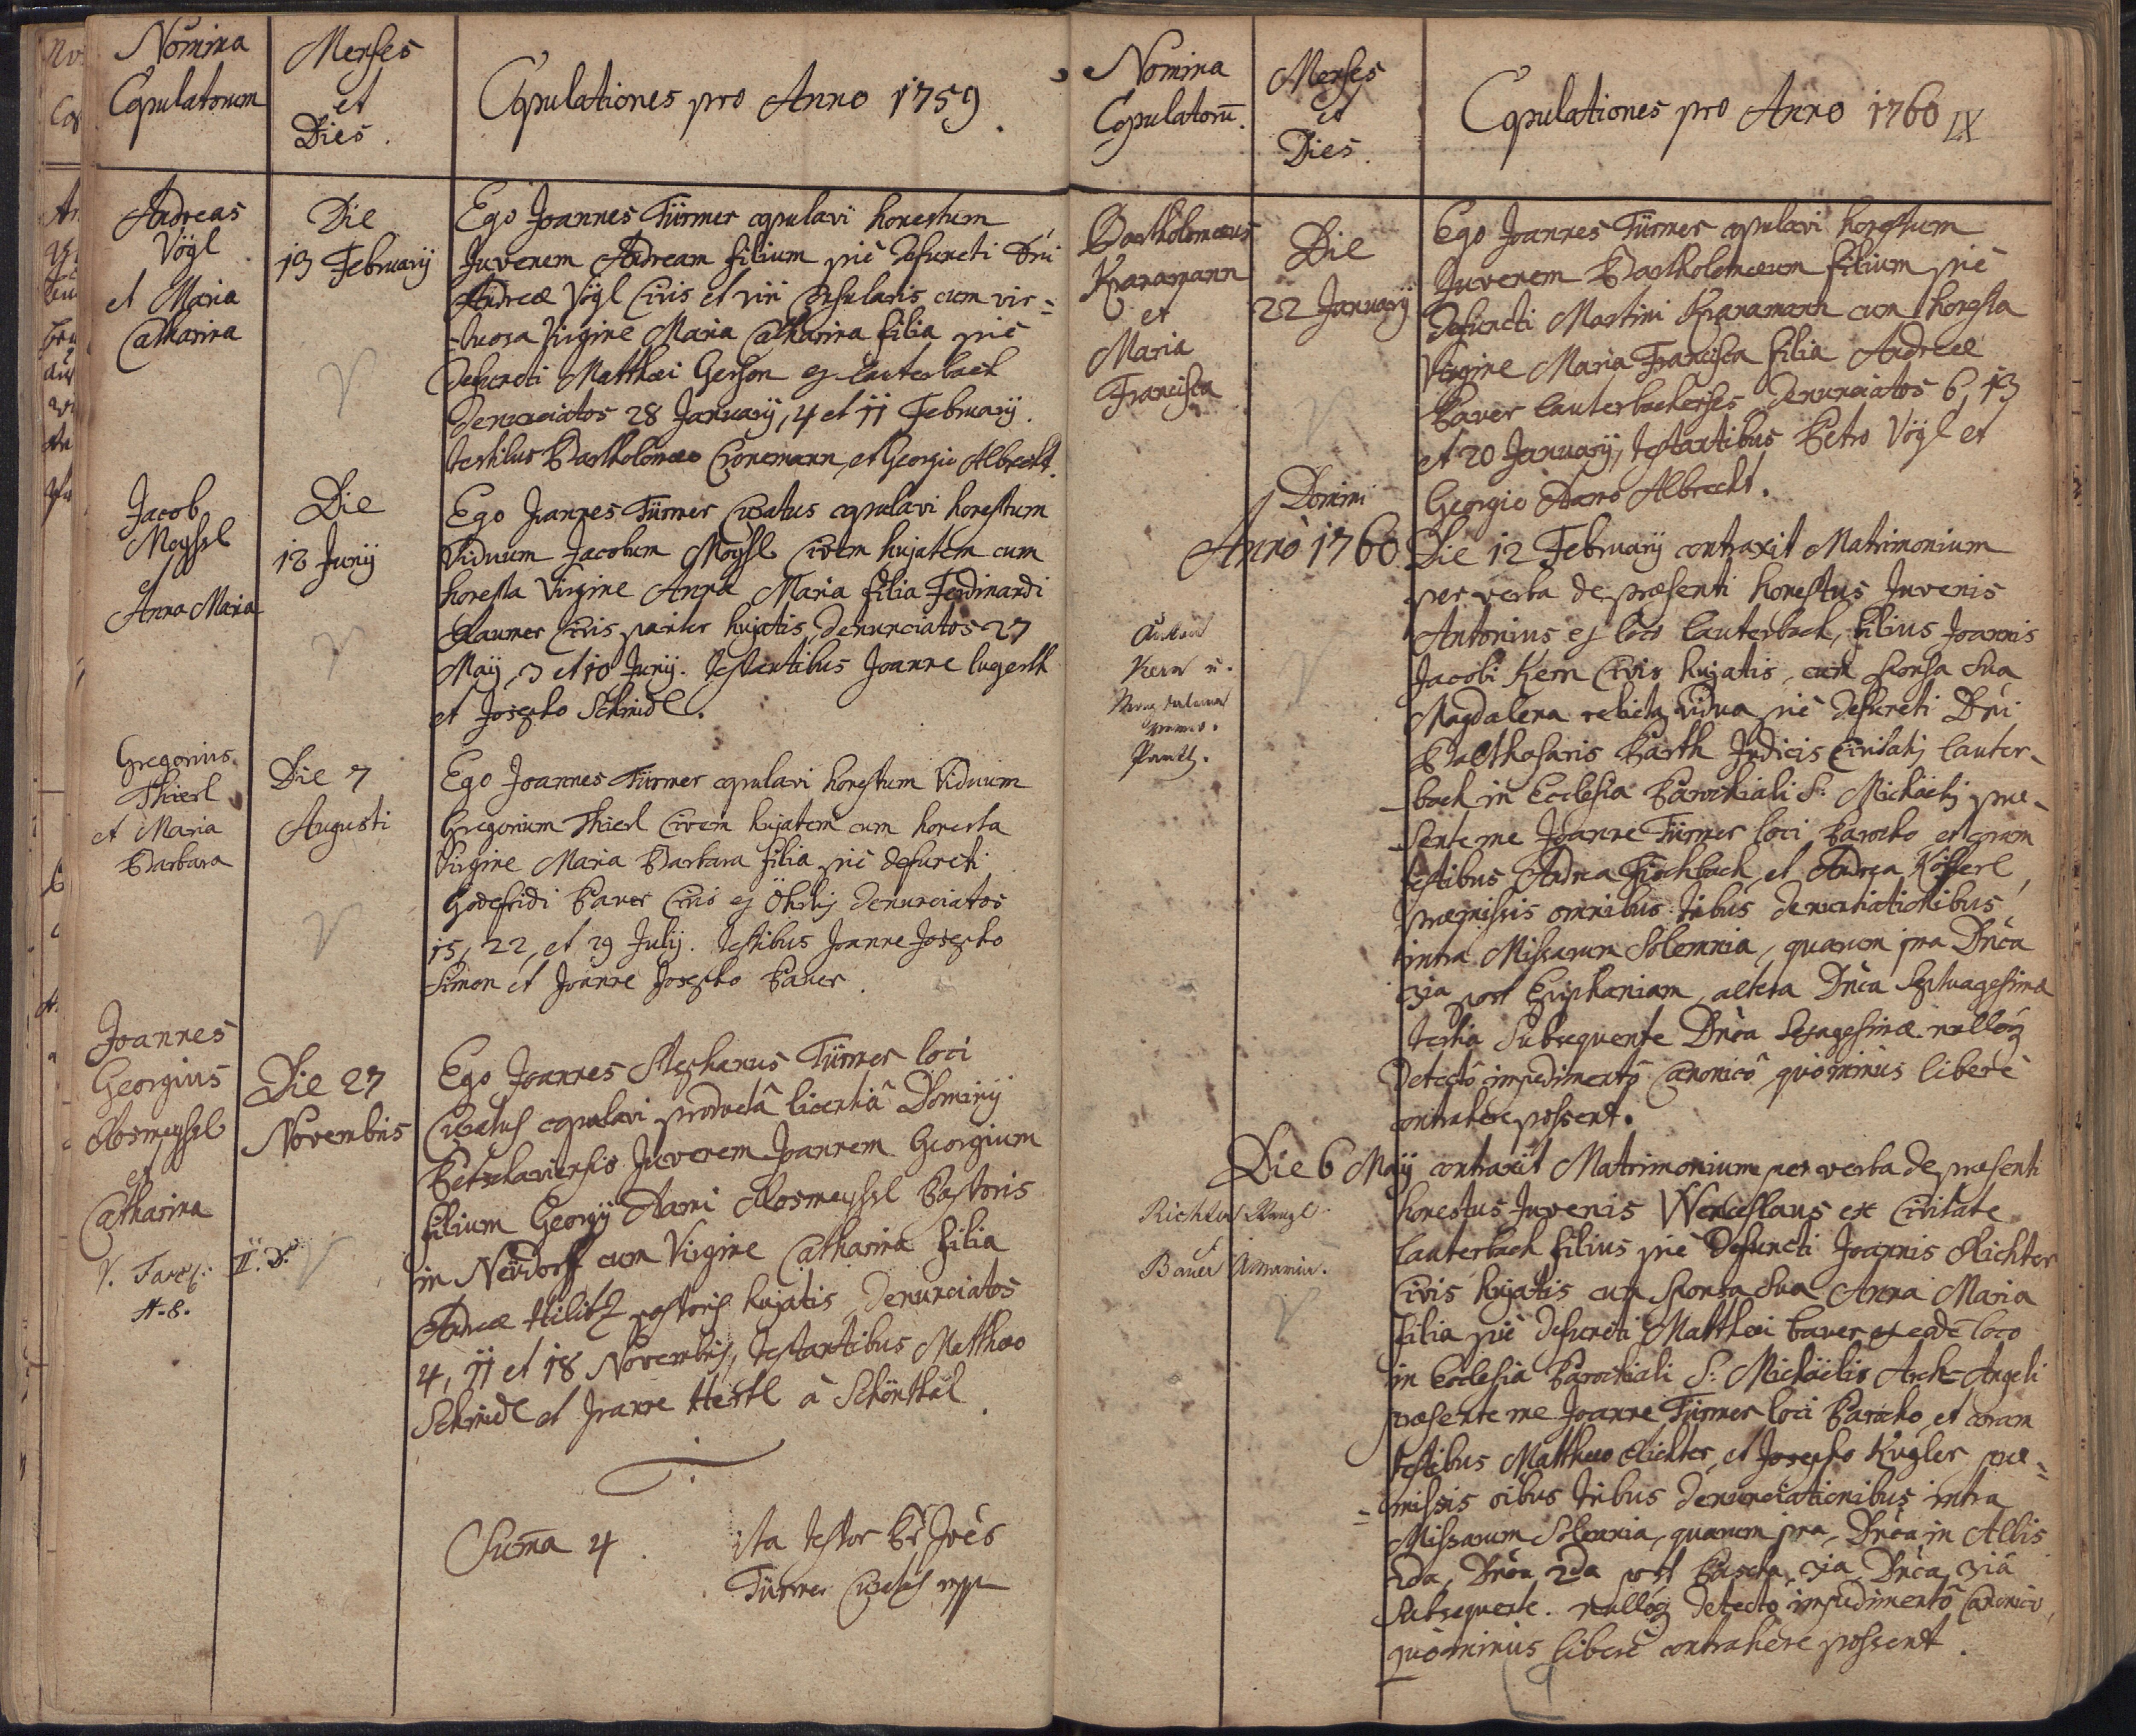 Nomina
Copulatorum
Menses
et
Dies.
Copulationes pro Anno 1759.
Andreas
Vögl
et Maria
Catharina
Die
13 February
Ego Joannes Türmer copulavi honestum
Juvenem Andream filium pie defuncti Dni
Andreæ Vögl Civis et viri Consularis cum vir=
=tuosa Virgine Maria Catharina filia pie
defuncti Matthæi Gerson ex Lauterbach
denunciatos 28 January, 4 et 11 February.
testibus Bartholomæo Cronemann et Georgio Albrecht.
Jacob
Moyssl
et
Anna Maria
Die
12 Juny
Ego Joannes Türmer Curatus copulavi honestum
Viduum Jacobum Moyssl Civem hujatem cum
honesta Virgine Anna Maria filia Ferdinandi
Civis pariter hujatis, denunciatos 27
May, 3 et 10 Juny. testantibus Joanne Lugerth
et Josepho Schmidl.
Gregorius
Thierl
et Maria
Barbara
Die 7
Augusti
Ego Joannes Türmer copulavi honestum Viduum
Gregorium Thierl Civem hujatem cum honesta
Virgine Maria Barbara filia pie defuncti
Godefridi Paver Civis ex denunciatos
15, 22, et 29 July. testibus Joanne Josepho
Simon et Joanne Josepho Paver.
Joannes
Georgius
Rosmeyssl
et
Catharina
V. II. D.
A-8.
Die 27
Novembris
Ego Joannes Stephanus Türmer loci
Curatus copulavi productâ licentiâ Dominy
Petschaviensis Juvenem Joannem Georgium
filium Georgy Adami Rosmeyssl Pastoris
in Neüdorff cum Virgine Catharina filia
Andreæ Hilitz pastoris hujatis, denunciatos
4, 11 et 18 Novembris, testantibus Matthæo
Schmidl et Joanne Hertl à Schönthal.
Suma 4.
ita testor Pr Joes
Türmer Curatus mpp
Nomina
Copulatoru.
Menses
et
Dies.
Copulationes pro Anno 1760 LX
Bartholomæus
Kranamann
et
Maria
Francisca
Die
22 January
Ego Joannes Türmer copulavi honestum
Juvenem Bartholomæum filium pie
defuncti Martini Kranamann cum honesta
Virgine Maria Francisca filia Andreæ
Paver Lauterbachenses denunciatos 6, 13
et 20 January, testantibus Petro Vögl et
Georgio Adamo Albrecht.
Domini
Anno 1760
Die 12 February contraxit Matrimonium
per verba de præsenti honestus Juvenis
Antonius ex loco Lauterbach, filius Joannis
Jacobi Kern Civis hujatis, cum sponsa sua
Magdalena relicta vidua pie defuncti Dni
Balthasaris Parth Judicis Civitatis Lauter-
-bach in Ecclesia Parochiali S: Michaelis præ-
-sente me Joanne Türmer loci Parocho, et coram
testibus Andrea Fischbach, et Andrea Kösserl,
præmissis omnibus tribus denuntiationibus
intra Missarum Solemnia, quarum 1ma Dnica
3ia post Epiphaniam, altera Dnica Septuagesimæ
tertia subsequente Dnica Sexagesimæ nulloq
detectô impedimentô Canonicô quôminus liberè
contrahere possent.
Kern u.
Magdalena
Parth.
Die 6 May contraxit Matrimonium per verba de præsenti
honestus Juvenis Wenceslaus ex Civitate
Lauterbach filius pie defuncti Joannis Richter
Civis hujatis cum sponsa sua Anna Maria
filia pie defuncti Matthæi Paver ex eode loco
in Ecclesia Parochiali S: Michäelis Arch-Angeli
præsente me Joanne Türmer loci Parocho, et coram
testibus Matthæo Richter, et Josepho Kugler præ=
=missis oibus tribus denunciationibus intra
Missarum Solemnia, quarum 1ma, Dnica in Albis
2da, Dnica 2da post Pascha, 3ia Dnica 3iâ
subsequente. nulloq detecto impedimentô Canonico,
quôminus liberè contrahere possent.
Richter Wenzl
Bauer Annamia.